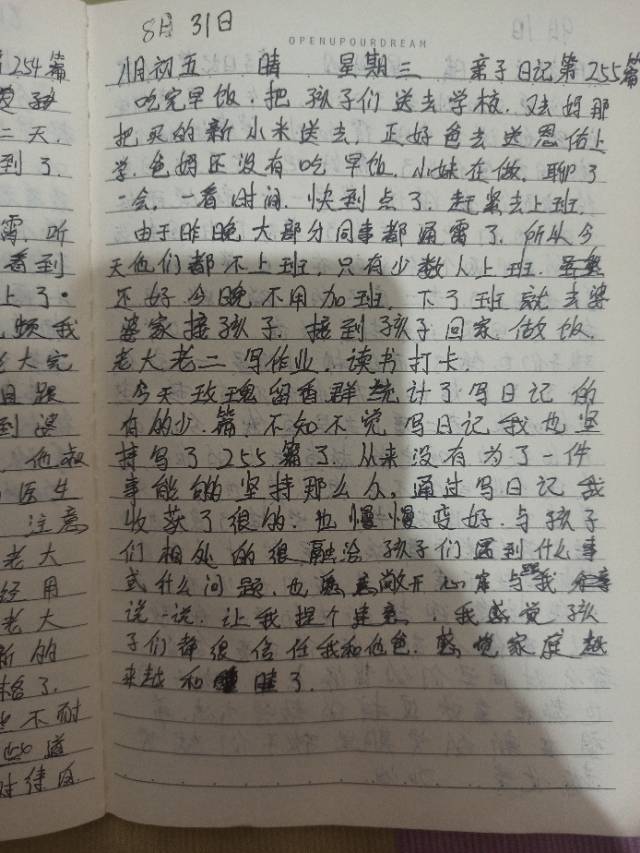 8月31日
OPENUPOURDREAM
254篇 八月初五 晴 星期三 亲子日记第255篇
吃完早饭.把孩子们送去学校.又去妈那
二天. 把买的新小米送去.正好爸去送恩佑上
到了. 学.爸妈还没有吃早饭.小妹在做.聊了
一会.一看时间.快到点了.赶紧去上班.
听 由于昨晚大部分同事都通宵了.所以今
看到 天他们都不上班.只有少数人上班.
上了. 还好今晚不用加班.下了班就去婆
我 婆家接孩子.接到孩子回家.做饭.
老大完 老大老二写作业.读书打卡.
今天玫瑰留香群统计了写日记的
到婆 有的少.篇.不知不觉写日记我也坚
持写了255篇了.从来没有为了一件
医生 事能够坚持那么久.通过写日记我
注意 收获了很的.也慢慢变好.与孩子
老大 们相处的很融洽 孩子们遇到什么事
经用 式什么问题.也愿意敞开心扉与我分享
老大 说一说.让我提个建意.我感觉孩
新的 子们都很信任我和他爸.感觉家庭越
了. 来越和睦了.
不耐
道
对待